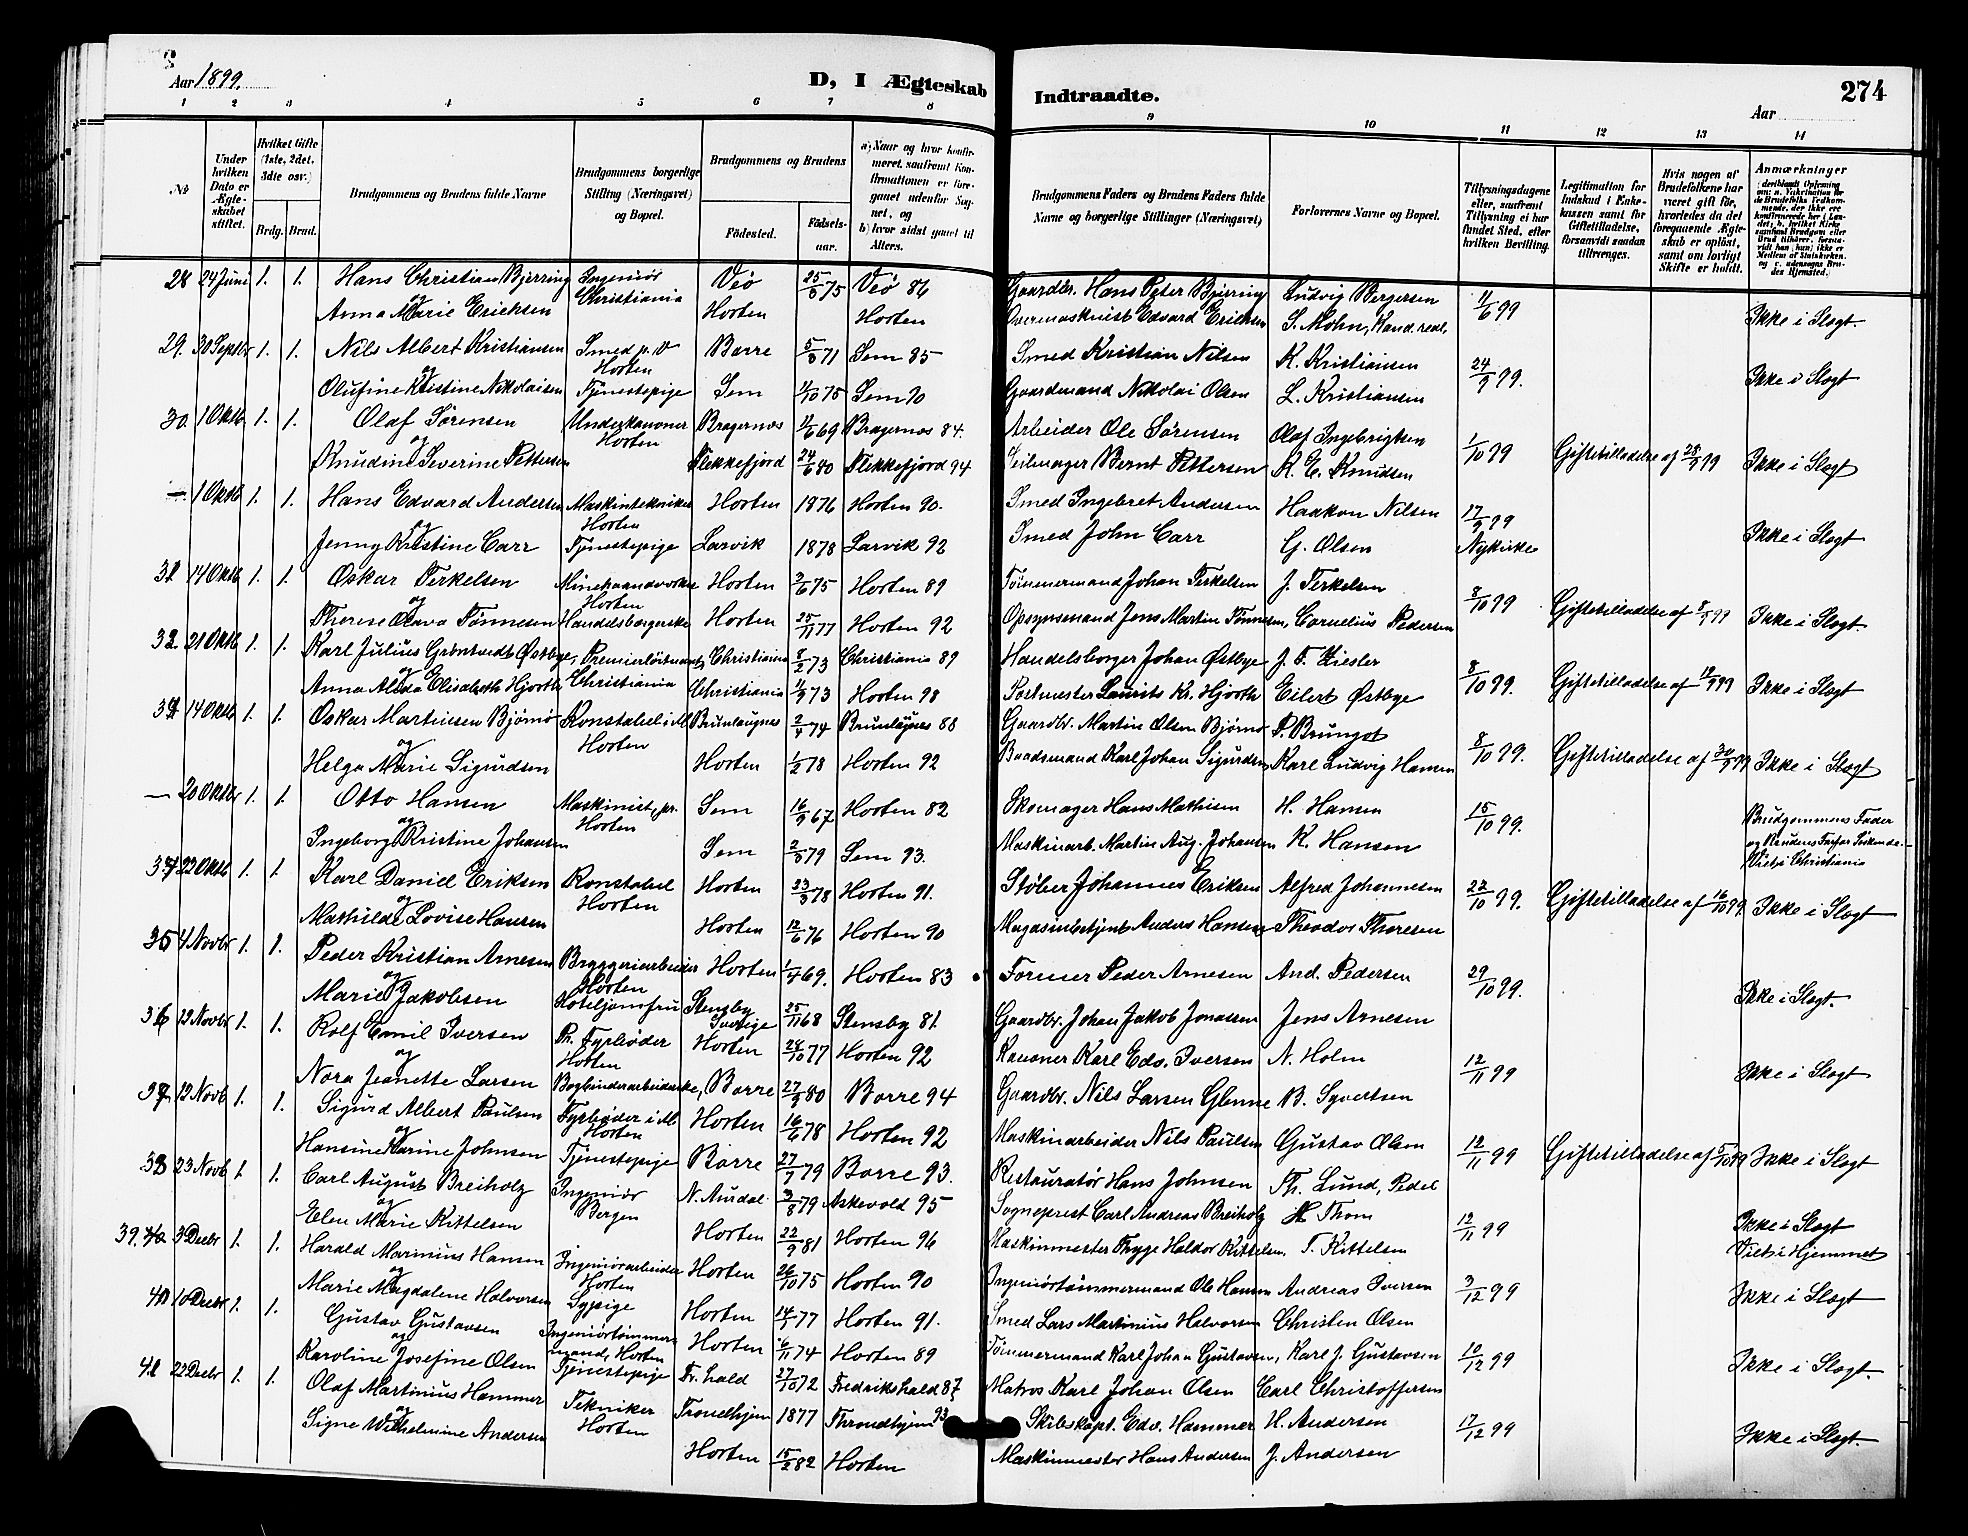 Aar 1899.
D, I Ægteskab Indtraadte.
274
Aar
1 2 3 4 5 6 7 8 9 10 11 12 13 14
No
Under hvilken Dato er Ægteskabet stiftet.
Hvilket Gifte (1ste, 2det, 3die osv.)
Brdg. Brud.
Brudgommens og Brudens fulde Navne
Brudgommens borgerlige Stilling (Næringsvei) og Bopæl.
Brudgommens og Brudens
Fødested. Fødsels-aar.
a) Naar og hvor konfirmeret, saafremt Konfirmationen er foregaaet udenfor Sognet, og b) hvor sidst gaaet til Alters.
Brudgommens Faders og Brudens Faders fulde Navne og borgerlige Stillinger (Næringsvei)
Forlovernes Navne og Bopæl.
Tillysningsdagene eller, saafremt Tillysning ei har fundet Sted, efter hvilken Bevilling.
Legitimation for Indskud i Enkekassen samt for Giftetilladelse, forsaavidt saadan tiltrænges.
Hvis nogen af Brudefolkene har været gift før, hvorledes da det foregaaende Ægteskab er opløst, samt om lovligt Skifte er holdt.
Anmærkninger
28 24 Juni 1. 1. Hans Christian Bjerring Ingeniør Christiania Veö 25/3 75 Veö 86 Gaardbr. Hans Peter Bjerring Ludvig Bergersen 11/6 99 Ikke i Slægt.
og Anna Marie Ericksen Horten Horten Overmaskinist Edvard Ericksen S. Mohn, Kand. real.
29. 30 Septbr 1. 1. Nils Albert Kristiansen Smed p. V Horten Borre 5/3 71 Sem 85 Smed Kristian Nilsen K. Kristiansen 24/9 99. Ikke i Slægt
og Olufine Kristine Nikolaisen Tjenestepige Sem 4/10 75 Sem 90 Gaardmand Nikolai Olsen L. Kristiansen
30. 1 Oktb. 1. 1. Olaf Sørensen Underkanoner Horten Bragernæs 11/6 69 Bragernæs 84. Arbeider Ole Sørensen Olaf Ingebrigtsen 1/10 99 Giftetilladelse af 28/9 99 Ikke i Slægt
og Knudine Severine Pettersen Flekkefjord 24/6 80 Flekkefjord 94 Seilmager Bernt Pettersen K. E. Knudsen
— 1 Oktb 1. 1. Hans Edvard Andersen Maskintekniker Horten Horten 1876 Horten 90. Smed Ingebret Andersen Haakon Nilsen 17/9 99 Nykirke Ikke i Slægt
og Jenny Kristine Carr Tjenestepige Larvik 1878 Larvik 92 Smed John Carr G. Olsen
31 14 Oktb 1. 1. Oskar Terkelsen Minehaandværker Horten Horten 2/6 75 Horten 89 Tømmermand Johan Terkelsen J. Terkelsen 8/10 99 Giftetilladelse af 8/9 99 Ikke i Slægt.
og Therese Olava Tönnesen Handelsborgerske Horten 25/11 77 Horten 92 Opsynsmand Jens Martin Tönnesen, Cornelius Pedersen
32. 21 Oktb 1. 1. Karl Julius Grøntvedt Østbye, Premierløitnant, Christiania Christiania 8/2 73 Christiania 89 Handelsborger Johan Østbye J. F. Ziesler 8/10 99. Giftetilladelse af 19/9 99 Ikke i Slægt
og Anna Alida Elisabeth Hjorth Christiania 11/9 73 Horten 98 Postmester Laurits Kr. Hjorth Eilert Østbye
33 14 Oktb 1. 1. Oskar Martinsen Bjørnø Konstabel i M. Horten Brunlaugnes 2/4 74 Brunlagnes 88 Gaardbr. Martin Olsen Bjørnø P. Brungot 8/10 99. Giftetilladelse af 30/9 99 Ikke i Slægt
og Helga Marie Sigurdsen Horten 1/2 78 Horten 92 Baadsmand Karl Johan Sigurdsen Karl Ludvig Hansen
— 20 Oktbr 1. 1. Otto Hansen Maskinist, pr. Horten Sem 16/9 67 Horten 82 Skomager Hans Mathisen H. Hansen 15/10 99. Brudgommens Fader og Brudens Farfar Söskende. Viet i Christiania
og Ingeborg Kristine Johansen Sem 2/3 79 Sem 93. Maskinarb. Martin Aug. Johansen K. Hansen
34 22 Oktb 1. 1. Karl Daniel Eriksen Konstabel Horten Horten 23/3 78 Horten 91. Støber Johannes Eriksen Alfred Johannesen 22/10 99. Giftetilladelse af 16/10 99 Ikke i Slægt
og Mathilde Lovise Hansen Horten 12/6 76 Horten 90 Magasinbetjent Anders Hansen Theodor Thoresen
35 4 Novbr 1. 1. Peder Kristian Arnesen Bryggeriarbeider Horten Horten 1/4 69. Horten 83 Former Peder Arnesen And. Pedersen 29/10 99. Ikke i Slægt.
og Marie Jakobsen Hoteljomfru Stensby Sverige 25/11 68 Stensby 81. Gaardbr. Johan Jakob Jonassen Jens Arnesen
36 12 Novbr 1. 1. Rolf Emil Iversen Ph. Fyrbøder Horten Horten 28/10 77 Horten 92 Kanoner Karl Edv. Iversen N. Holm 12/11 99 Ikke i Slægt
og Nora Jeanette Larsen Bogbinderarbeiderske, Borre 27/3 80 Borre 94 Gaardbr. Nils Larsen Glenne B. Syvertsen
37 12 Novb 1. 1. Sigurd Albert Paulsen Fyrbøder i M. Horten Horten 16/6 78 Horten 92 Maskinarbeider Nils Paulsen Gustav Olsen 12/11 99 Giftetilladelse af 5/10 99 Ikke i Slægt
og Hansine Karine Johnsen Tjenestepige Borre 27/7 79 Borre 93. Restauratør Hans Johnsen Th. Lund, Pedel
38 23 Novb 1. 1. Carl August Breiholz Ingeniør Bergen N. Audal. 3/8 79 Askevold 95 Sogneprest Carl Andreas Breiholz H. Thom 12/11 99 Ikke i Slægt Viet i Hjemmet
og Elen Marie Kittelsen Horten 22/9 81 Horten 96 Maskinmester Thyge Haldor Kittelsen, T. Kittelsen
39. 3 Decbr 1. 1. Harald Marinius Hansen Ingeniørarbeider Horten Horten 26/10 75 Horten 90 Ingeniørtømmermand Ole Hansen Andreas Iversen 3/12 99 Ikke i Slægt
og Marie Magdalene Halvorsen Sypige Horten 14/7 77 Horten 91. Smed Lars Martinius Halvorsen Christen Olsen
40 10 Decbr 1. 1. Gustav Gustavsen Ingeniørtømmermand, Horten Horten 6/11 74 Horten 89 Tømmermand Karl Johan Gustavsen, Karl J. Gustavsen 10/12 99 Ikke i Slægt.
og Karoline Josefine Olsen Tjenestepige Fr. hald 27/10 72 Fredrikshald 87 Matros Karl Johan Olsen Carl Christoffersen
41 22 Decbr 1. 1. Olaf Martinius Hammer Tekniker Horten Trondhjem 1877 Throndhjem 93 Skibskapt. Edv. Hammer H. Andersen 17/12 99 Ikke i Slægt.
og Signe Wilhelmine Andersen Horten 15/2 82 Horten Maskinmester Hans Andersen J. Andersen